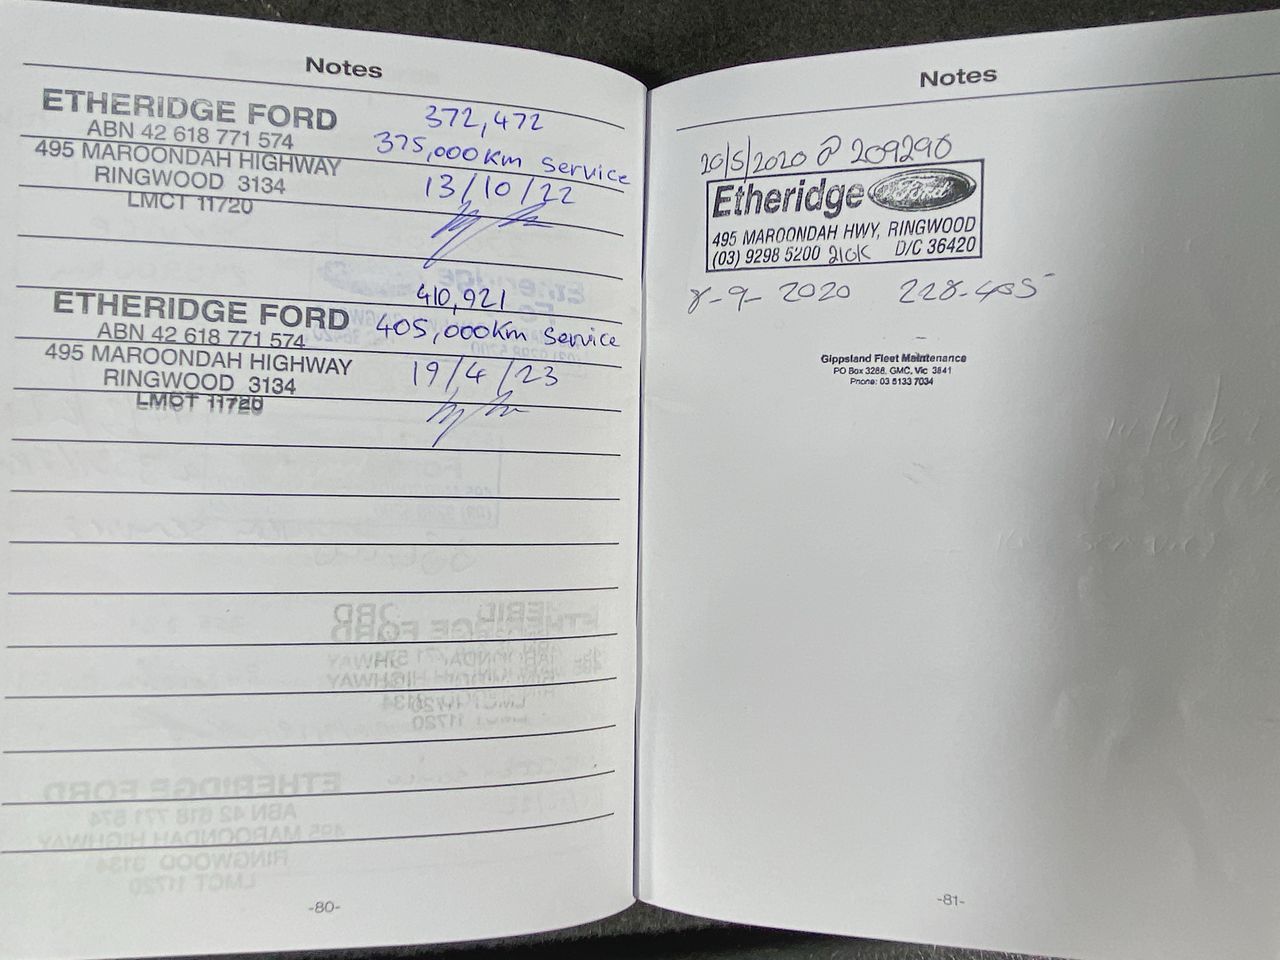 Notes
ETHERIDGE FORD
ABN 42 618 771 574
495 MAROONDAH HIGHWAY
RINGWOOD 3134
LMCT 11720
372,472
375,000km Service
13/10/22
ETHERIDGE FORD
ABN 42 618 771 574
495 MAROONDAH HIGHWAY
RINGWOOD 3134
LMCT 11720
410,921
405,000km Service
19/4/23
-80-
Notes
20/5/2020 @ 209290
Etheridge Ford
495 MAROONDAH HWY, RINGWOOD
(03) 9298 5200 210K D/C 36420
8-9-2020 228-405
Gippsland Fleet Maintenance
PO Box 3288, GMC, Vic 3841
Phone: 03 5133 7034
-81-